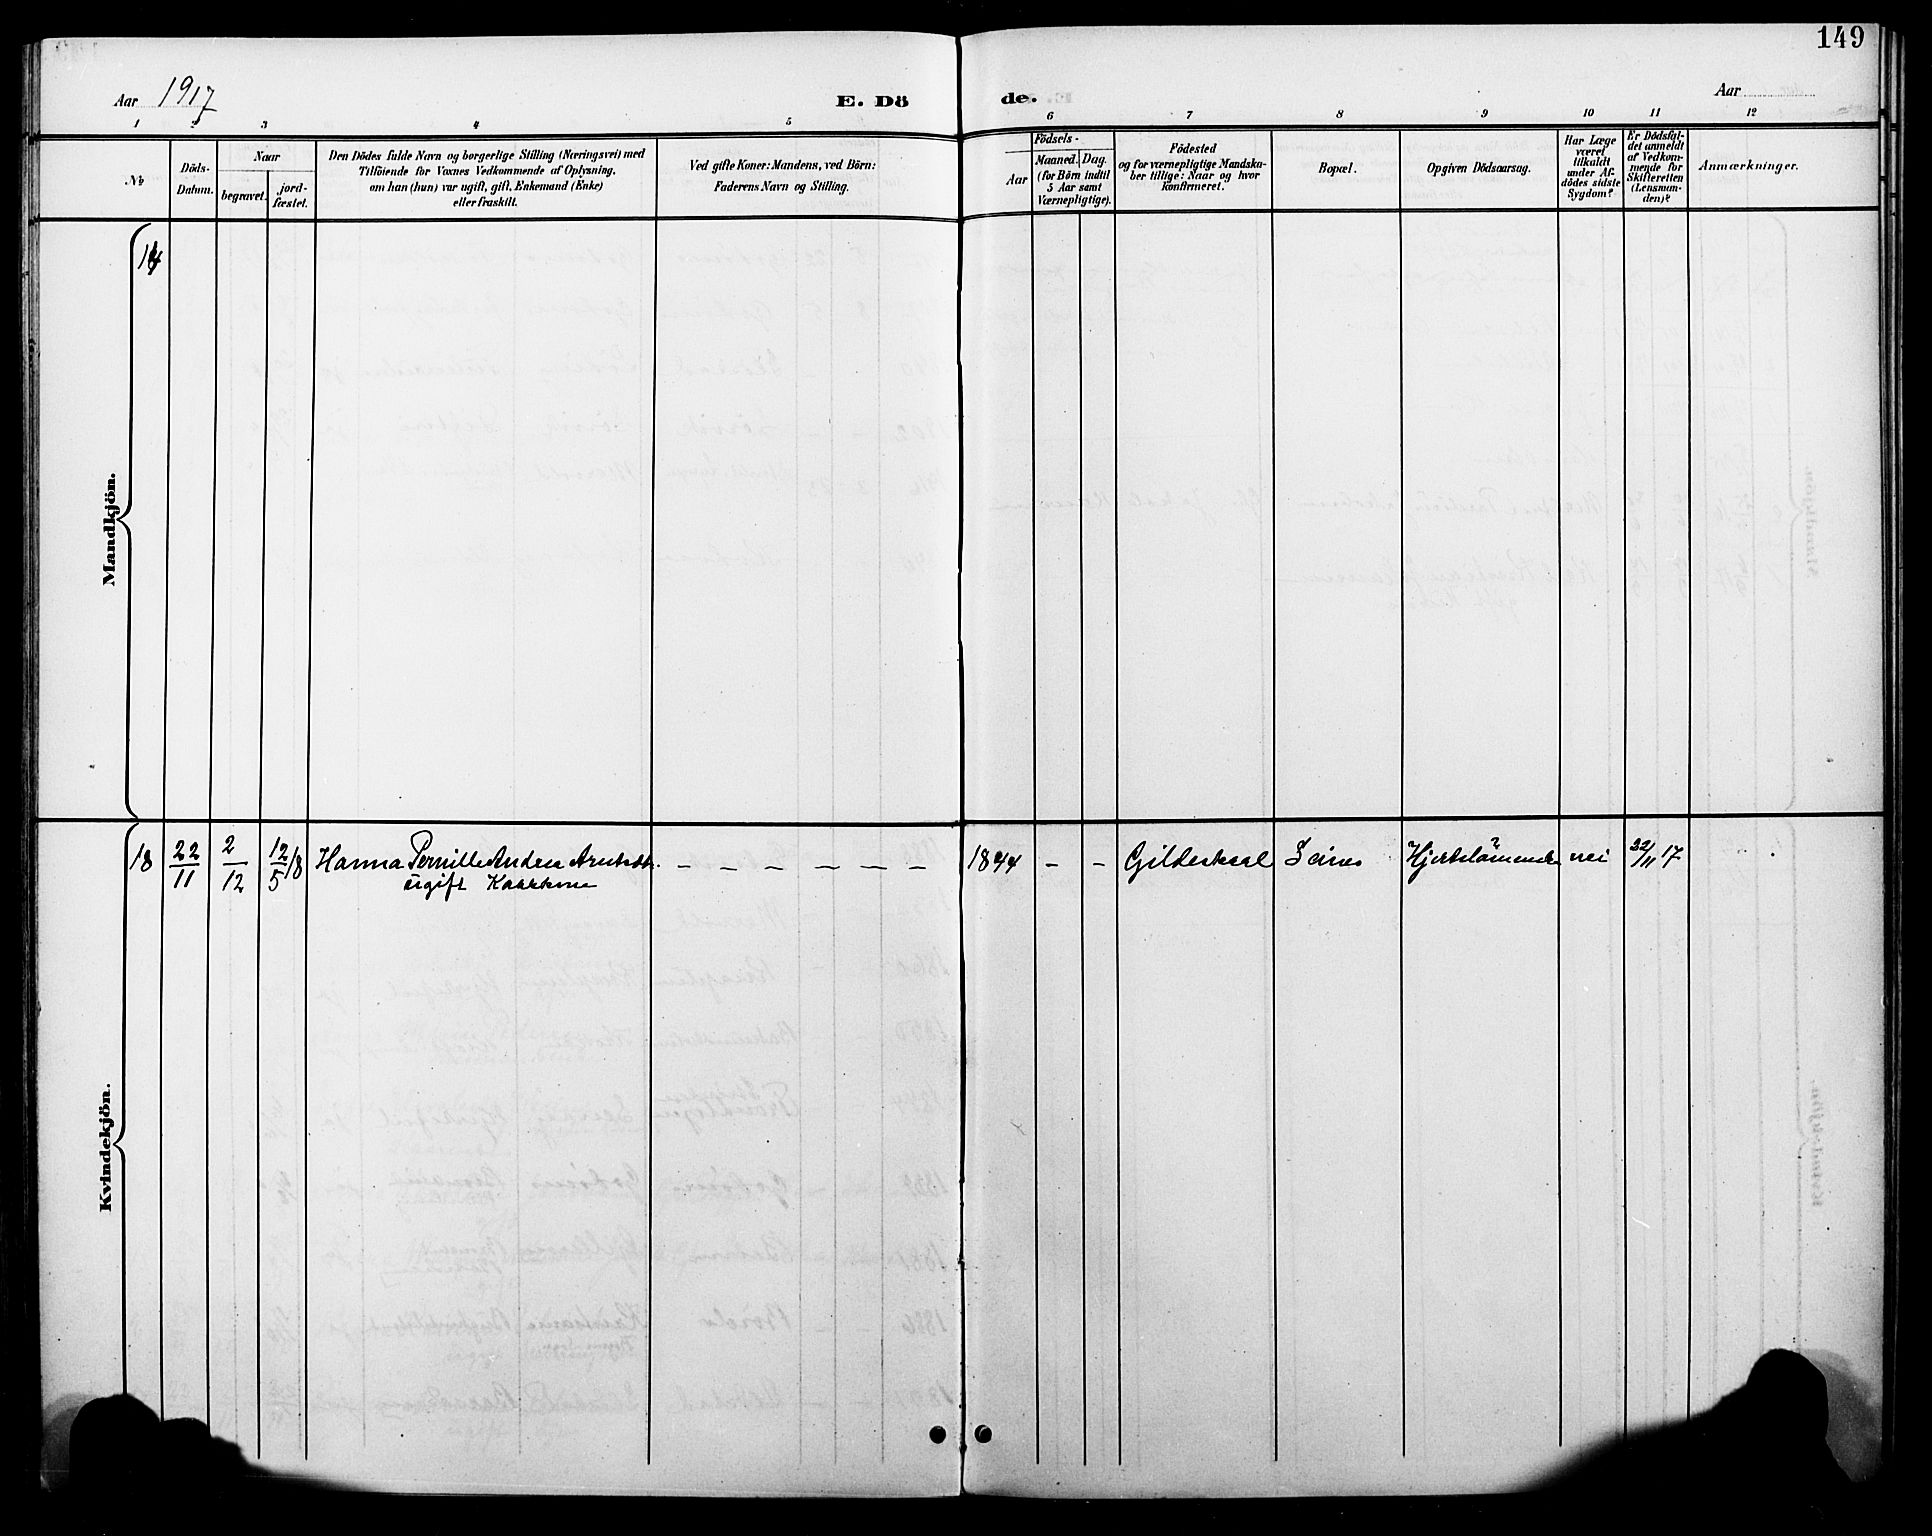 149
Aar 1917
E. Döde.
Aar
1 2 3 4 5 6 7 8 9 10 11 12
No
Döds-
Datum.
Naar
begravet.
jord-
fæstet.
Den Dödes fulde Navn og borgerlige Stilling (Næringsvei) med
Tilföiende for Voxnes Vedkommende af Oplysning,
om han (hun) var ugift, gift, Enkemand (Enke)
eller fraskilt.
Ved gifte Koner: Mandens, ved Börn:
Faderens Navn og Stilling.
Födsels-
Aar
Maaned. Dag.
(for Börn indtil
5 Aar samt
Værnepligtige).
Födested
og for værnepligtige Mandska-
ber tillige: Naar og hvor
konfirmeret.
Bopæl.
Opgiven Dödsaarsag.
Har Læge
været
tilkaldt
under Af-
dödes sidste
Sygdom?
Er Dödsfal-
det anmeldt
af Vedkom-
mende for
Skifteretten
(Lensman-
den)?
Anmærkninger.
Mandkjön.
14
Kvindekjön.
18 22/11 2/12 12/5 18 Hanna Pernille Andrea — — — — — — — 1844 — — Gildeskaal Seines Hjertelammelse? nei 22/11 17
ugift